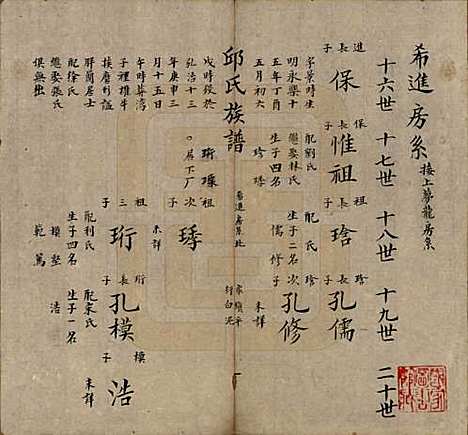 希進房系 接上夢龍房系
十六世 十七世 十八世 十九世 二十世
進長子 保
保長子 惟祖
祖長子 琀
琀長子 孔儒
名景時生
明永樂十
五年丁酉
五月初六
配劉氏
繼娶林氏
生子四名
珍 琇
配 氏
生子二名
儒 修
琀次子 孔修
未詳
邱氏族譜
希進房系
戌時歿於
弘治十三
年庚申三
月十五日
午時葬湾
子裡雄牛
挨磨形謚
胖蘭居士
配徐氏
繼娶張氏
俱無
珩 璨
○居下厂
祖次子 琇
未詳
祖三子 珩
配利氏
生子四名
模 堅
範 篤
珩長子 孔模
配宋氏
生子一名
浩
模子 浩
未詳